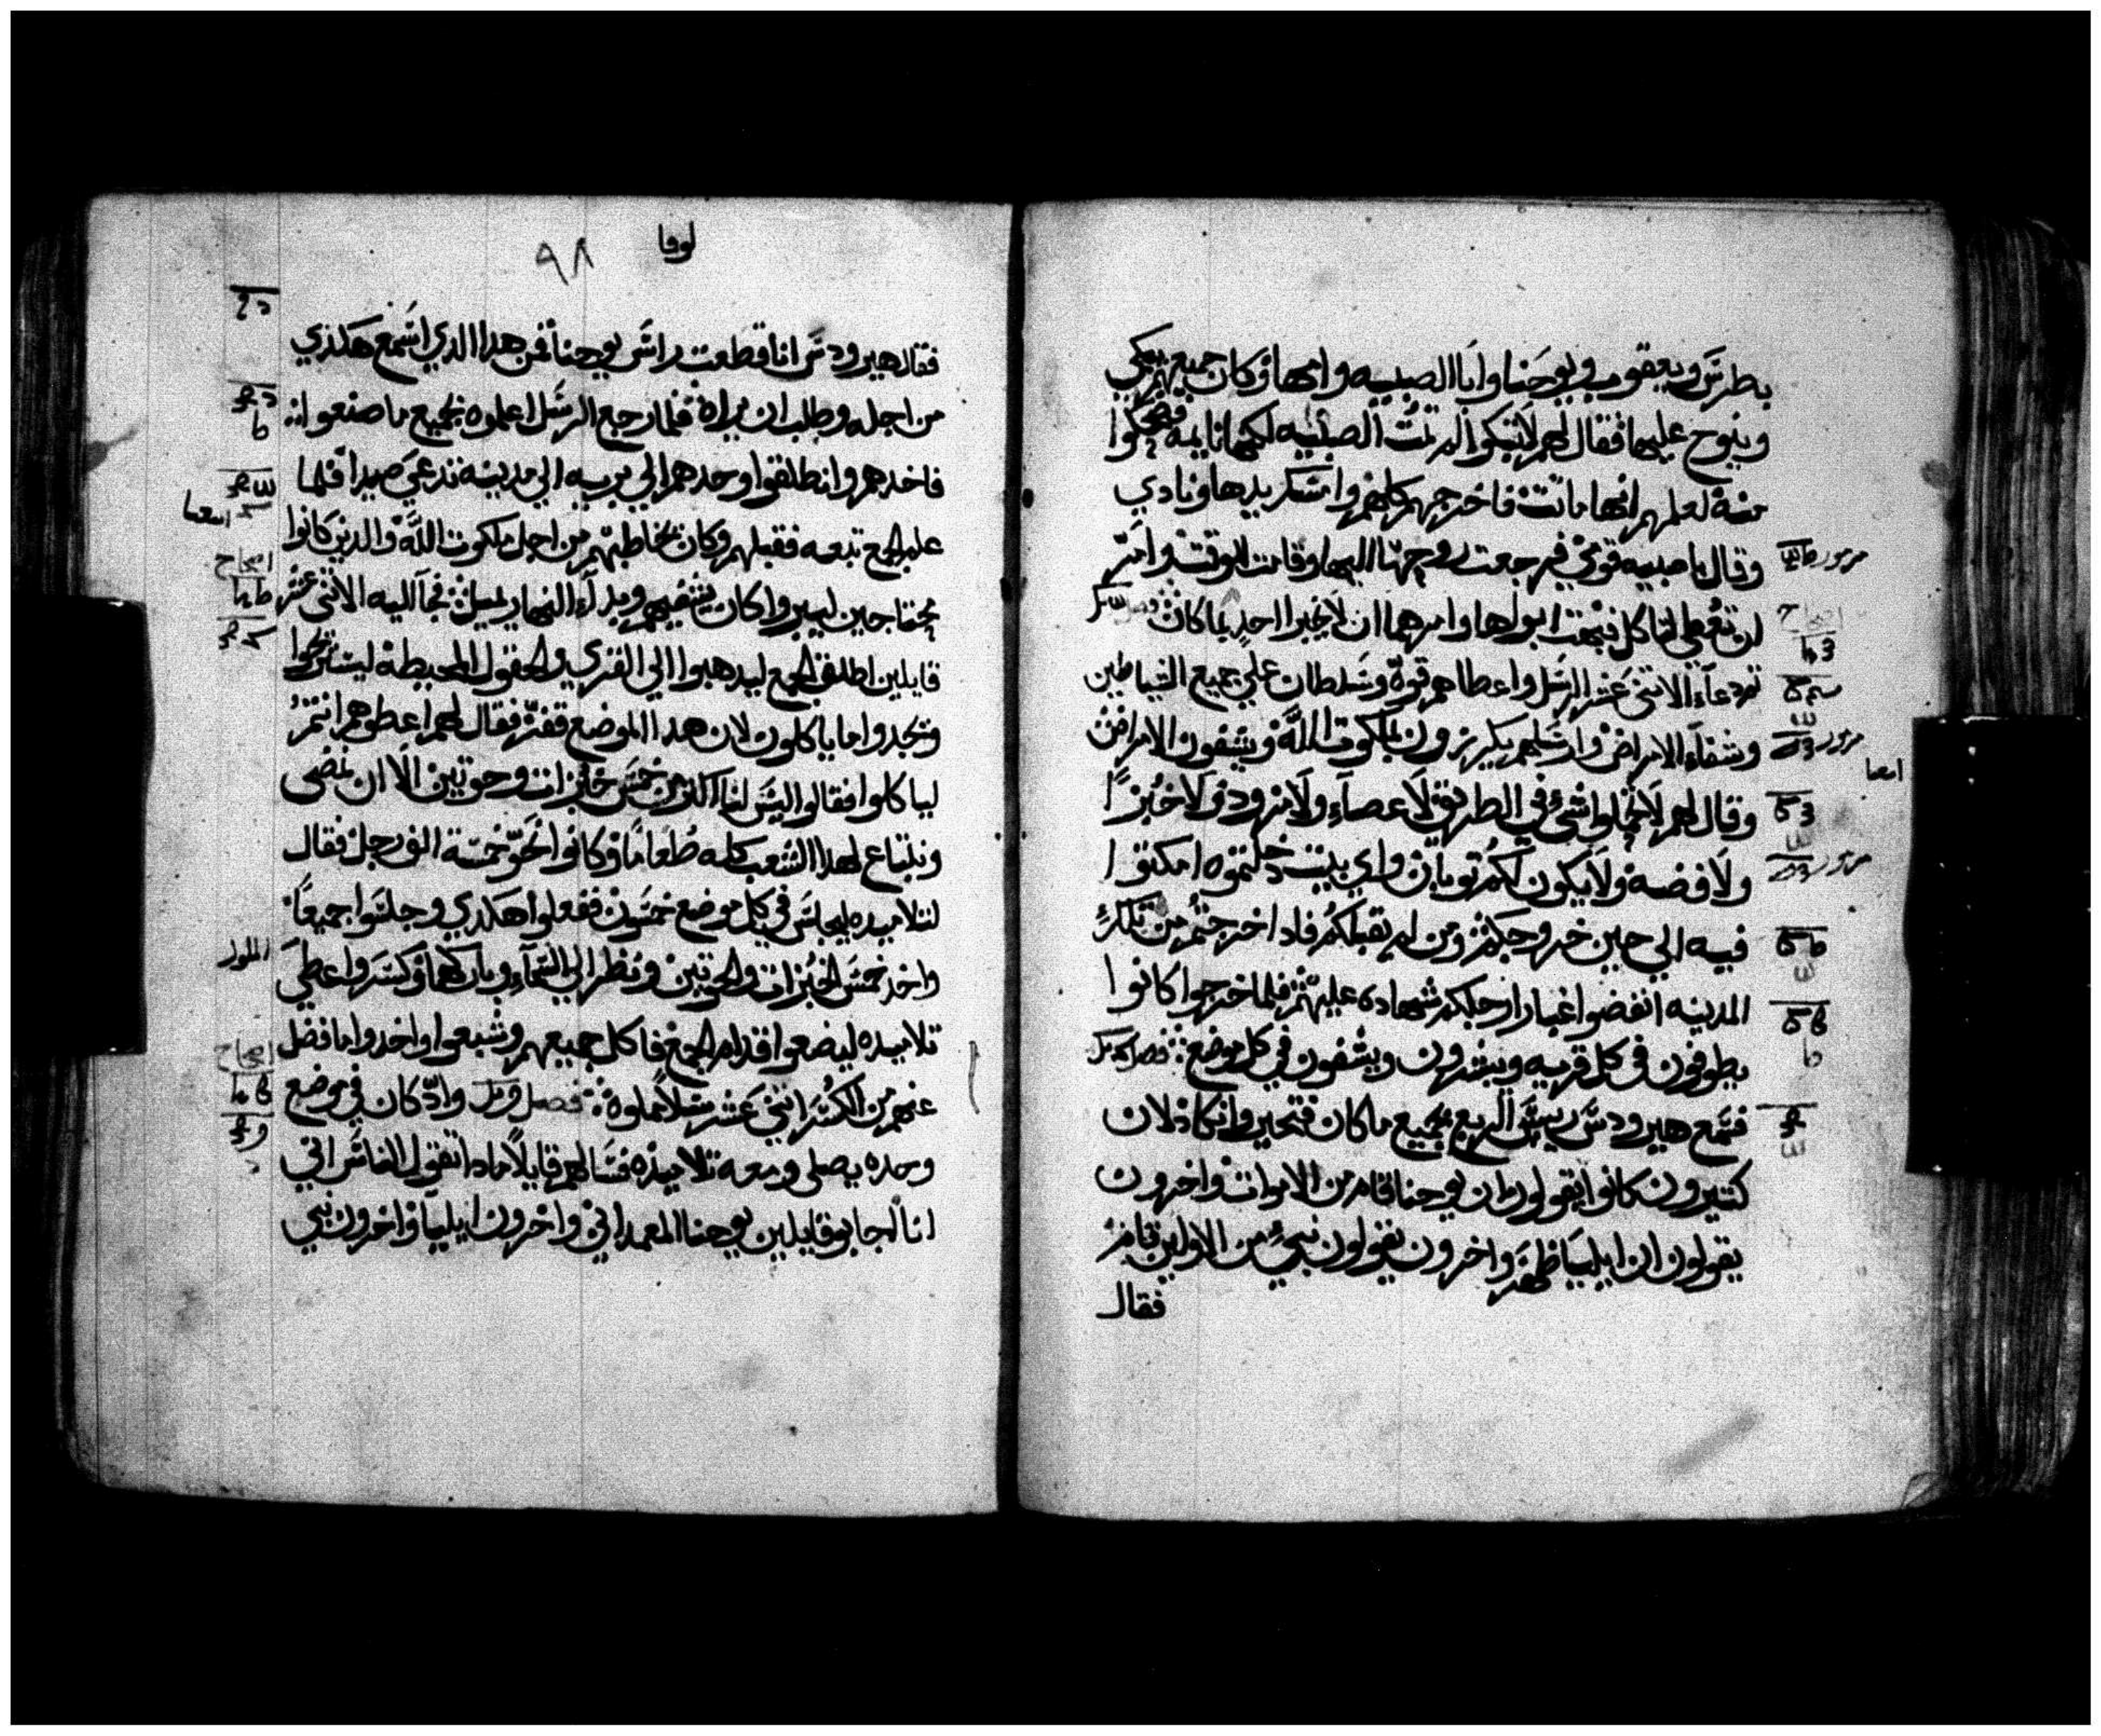 بطرس ويعقوب ويوحنا وابا الصبيه وامها وكان جميعهم يبكي
وينوح عليها فقال لهم لا تبكوا لم تمت الصبيه لكنها نايمه فضحكوا
منه لعلمهم انها ماتت فاخرجهم كلهم وامسك بيدها ونادي
وقال يا صبيه قومي فرجعت روحها اليها وقامت للوقت وامر
ان تعطي لتاكل فبهت ابواها وامرهما ان لا يخبرا احد بما كان
ثم دعا الاثني عشر الرسل واعطاهم قوه وسلطان علي جميع الشياطين
وشفاء الامراض وارسلهم يكرزون بملكوت الله ويشفون الامراض
وقال لهم لا تحملوا شي في الطريق لا عصاء ولا مزود ولا خبزا
ولا فضه ولا يكون لكم توبان واي بيت دخلتموه امكتوا
فيه الي حين خروجكم ومن لم يقبلكم فادا خرجتم من تلك
المدينه انفضوا غبار ارجلكم شهاده عليهم فلما خرجوا كانوا
يطوفون في كل قريه ويبشرون ويشفون في كل موضع فصل
فسمع هيرودس رييس الربع بجميع ما كان فتحير وانكاد لان
كتيرون كانوا يقولون ان يوحنا قام من الاموات واخرون
يقولون ان ايليا ظهر واخرون يقولون نبي من الاولين قام
فقال
لوقا
٩٨
فقال هيرودس انا قطعت راس يوحنا فمن هدا الدي اسمع هكدي
من اجله وطلب ان يراه فلما رجع الرسل اعلموه بجميع ما صنعوا
فاخدهم وانطلقوا وحدهم الي بريه الي مدينه تدعي صيدا فلما
علم الجمع تبعه فقبلهم وكان يخاطبهم من اجل ملكوت الله والدين كانوا
محتاجين ليبروا كان يشفيهم وبدا النهار يميل فجا اليه الاثني عشر
قايلين اطلق الجمع ليدهبوا الي القري والحقول المحيطه ليستريحوا
ويجدوا ما ياكلون لان هدا الموضع قفر فقال لهم اعطوهم انتم
لياكلوا فقالوا ليس لنا اكتر من خمس خبزات وحوتين الا ان نمضي
ونبتاع لهدا الشعب كله طعاما وكانوا نحو خمسة الف رجل فقال
لتلاميده ليجلس في كل موضع خمسون ففعلوا هكدي وجلسوا جميعا
واخد خمس الخبزات والحوتين ونظر الي السماء وباركها وكسر واعطي
تلاميده ليضعوا قدام الجمع فاكل جميعهم وشبعوا واخدوا ما فضل
عنهم من الكسر اثني عشر سلا مملوه فصل واد كان في موضع
وحده يصلي ومعه تلاميده فسالهم قايلا مادا تقول الناس اني
انا اجابو قايلين يوحنا المعمداني واخرون ايليا واخرون نبي